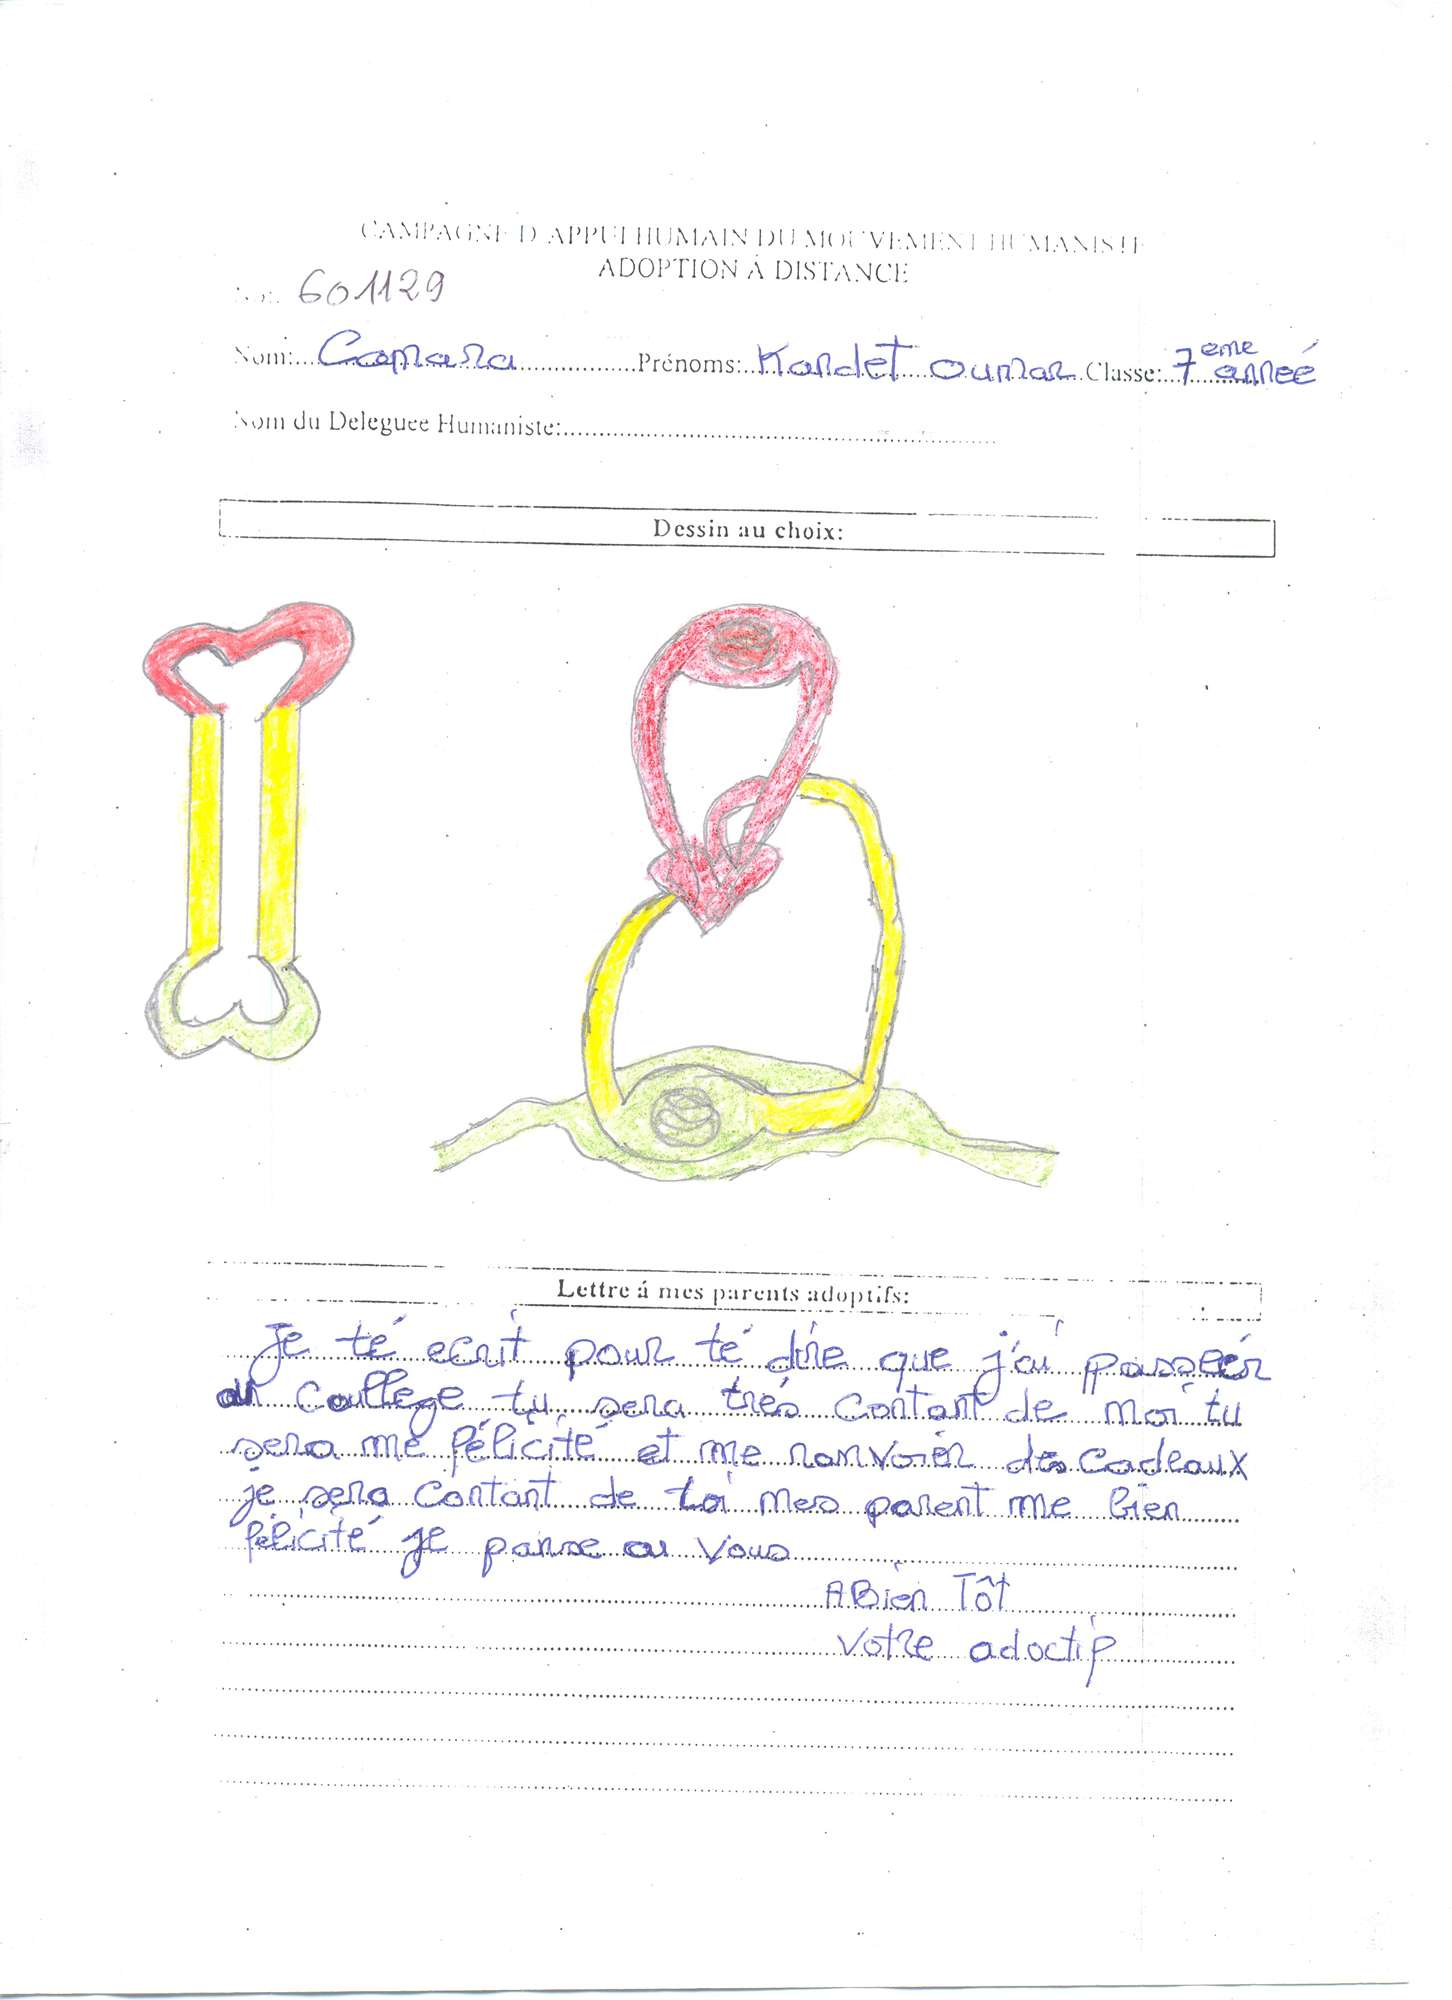 CAMPAGNE D'APPUI HUMAIN DU MOUVEMENT HUMANISTE
ADOPTION Á DISTANCE
601129
Nom: Camara Prénoms: Kandet oumar Classe: 7eme anneé
Nom du Deleguee Humaniste:
Dessin au choix:
Lettre á mes parents adoptifs:
Je té ecrit pour té dire que j'ai passeér
au coullege tu sera trés contant de moi tu
sera me félicité et me ranvoièr des cadeaux
je sera contant de toi mes parent me bien
félicité je panse a vous
A Bien Tôt
Votre adoctif